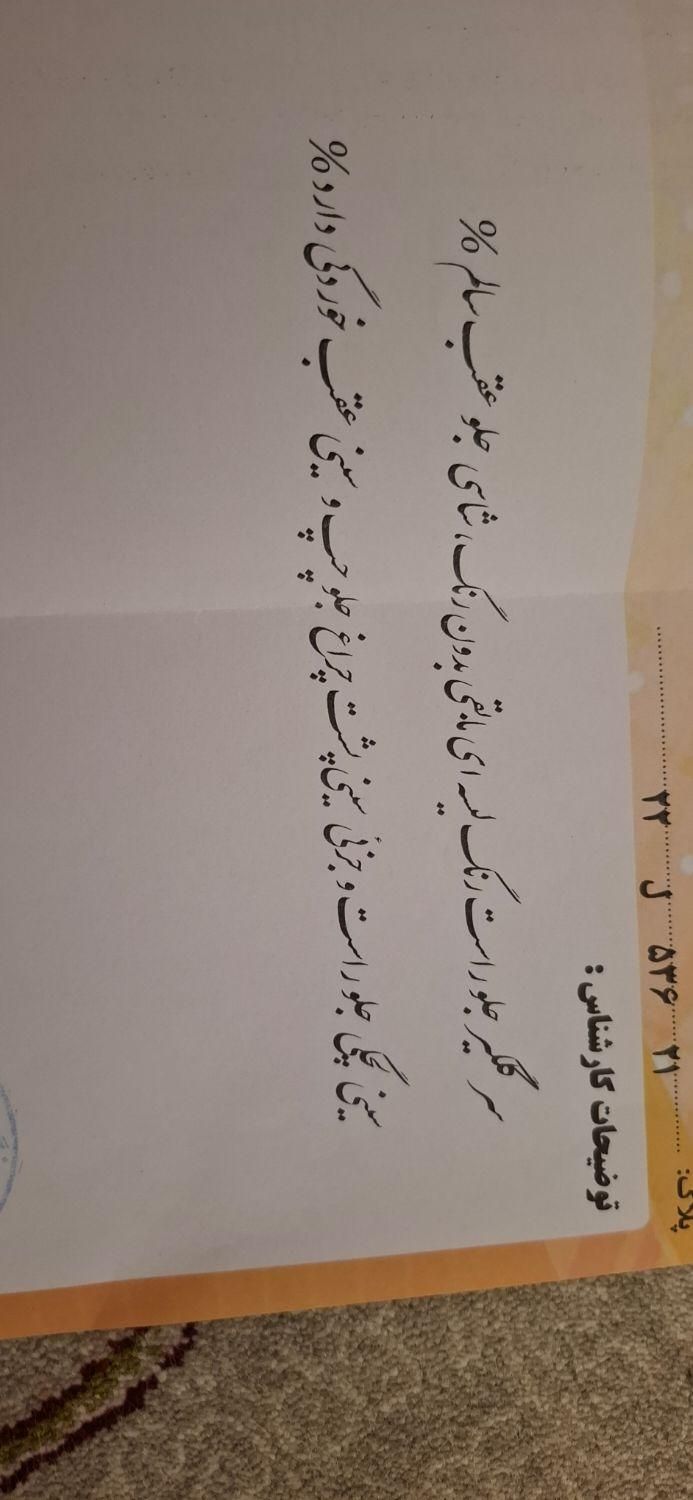 پلاک: ۲۱ ۵۳۶ ل ۲۲
توضیحات کارشناس :
سر گلگیر جلو راست رنگ لیسه ای مابقی بدون رنگ، شاسی جلو عقب سالم %
سینی پکیجی جلو راست و جزئی سینی پشت چراغ جلو چپ و سینی عقب خوردگی دارد %